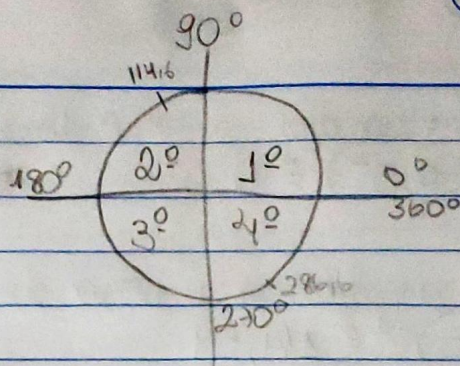 90º
114,6
180º 2º 1º 0º
360º
3º 4º
286,6
270º